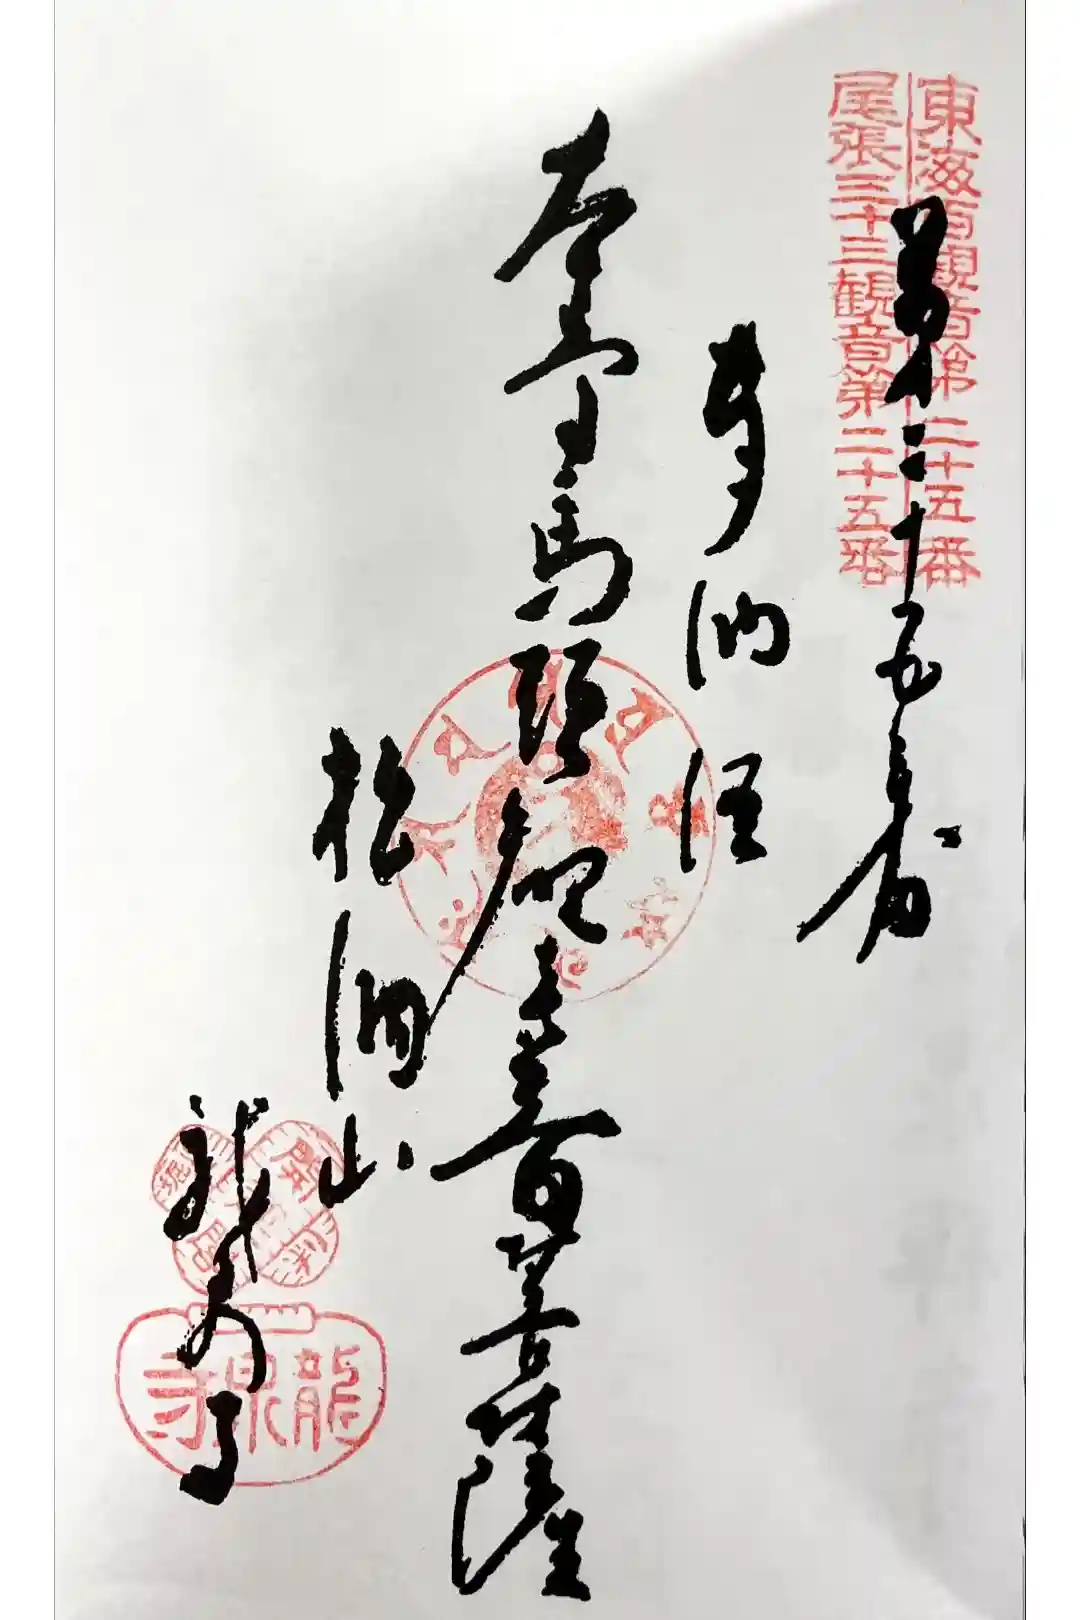 東海百観音第二十五番
尾張三十三観音第二十五番
第二十五番
奉納経
馬頭観世音菩薩
松洞山
龍泉寺
龍泉寺